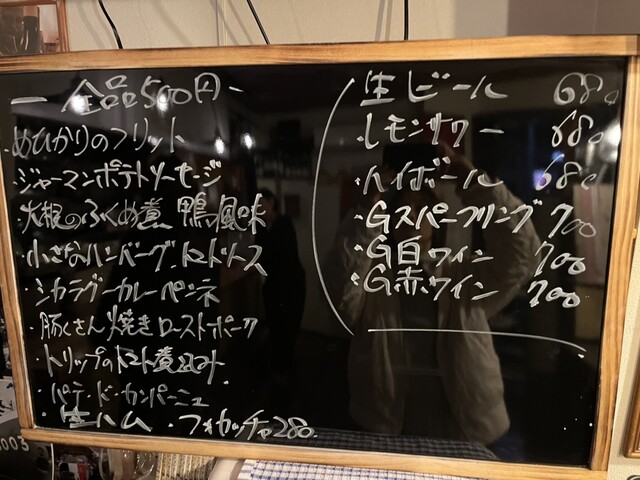 ー 全品500円 ー
・めひかりのフリット
・ジャーマンポテトソーセージ
・大根のふくめ煮 鴨風味
・小さなハンバーグ、トマトソース
・シカラグーカレーペンネ
・豚くさん焼きローストポーク
・トリップのトマト煮込み
・パテ・ド・カンパーニュ
・生ハム ・フォカッチャ280.
生ビール 680
・レモンサワー 680
・ハイボール 680
・Gスパークリング 700
・G白ワイン 700
・G赤ワイン 700
003